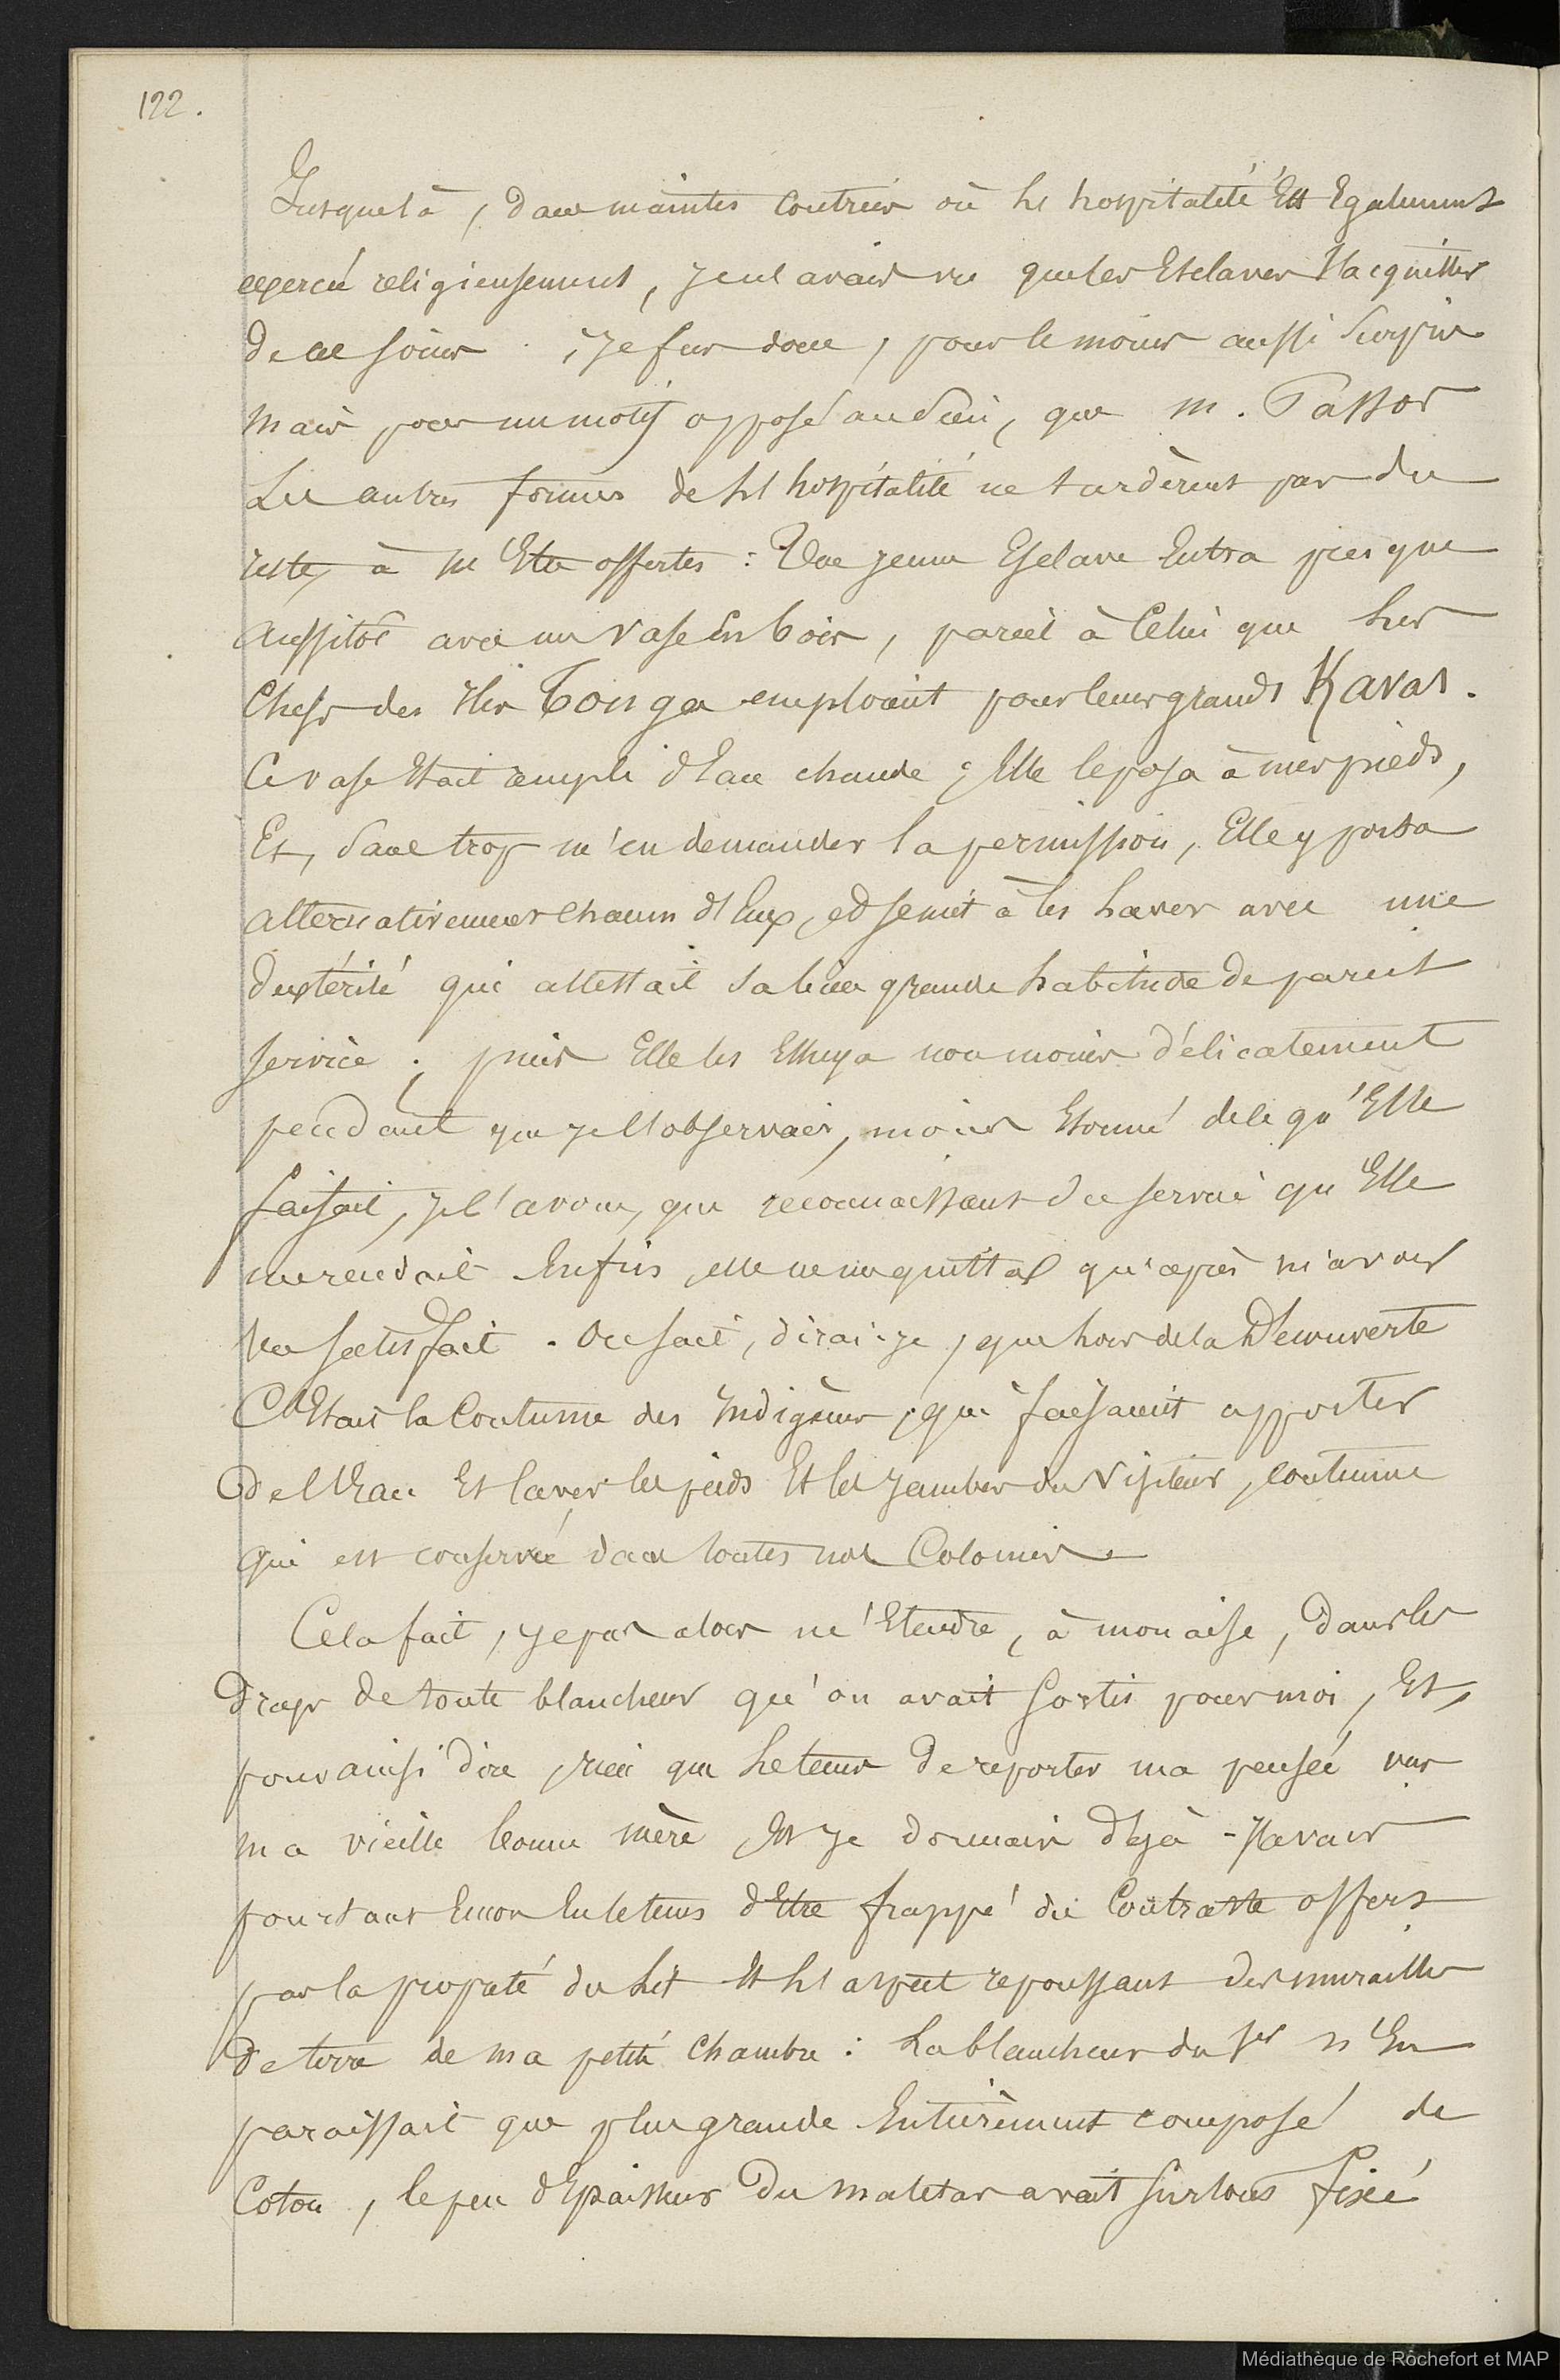 122.
Jusque là, dans maintes contrées où l'hospitalité est également
exercée religieusement, je n'avais vu que les Esclaves s'acquitter
de ce soin ; je fus donc, pour le moins aussi surpris
mais pour un motif opposé au sien, que M. Pastor
Les autres formes de l'hospitalité ne tardèrent pas du
reste, à m'être offertes : Une jeune Esclave entra presque
aussitôt avec un vase en bois, pareil à celui que les
Chefs des iles Tonga emploient pour leurs grands Kavas.
Ce vase était rempli d'Eau chaude ; Elle le posa à mes pieds,
Et, sans trop m'en demander la permission, Elle y porta
alternativement chacun d'Eux, et se mit à les laver avec une
dextérité qui attestait sa bien grande habitude de pareil
service ; puis Elle les Essuya non moins délicatement
pendant que je l'observais, moins étonné de ce qu'Elle
faisait, je l'avoue, que reconnaissant du service qu'Elle
me rendait. Enfin, elle ne me quitta qu'après m'avoir
vu satisfait. On sait, dirai-je, que lors de la Découverte
C'Etait la Coutume des Indigènes, qui faisaient apporter
de l'Eau Et laver les pieds Et les jambes du visiteur, coutume
qui est conservée dans toutes nos Colonies.
Cela fait, je pus alors m'Etendre, à mon aise, dans les
draps de toute blancheur qu'on avait sortis pour moi, Et,
pour ainsi dire, rien que le tems de reporter ma pensée vers
ma vieille bonne mère, Et je dormais déjà - J'avais
pourtant Encore Eu le tems d'Etre frappé du Contraste offert
par la propreté du lit Et l'aspect repoussant des murailles
de terre de ma petite chambre : La blancheur du 1er n'En
paraissait que plus grande. Entièrement composé de
Coton, le peu d'Epaisseur du matelas avait surtout fixé
Médiathèque de Rochefort et MAP